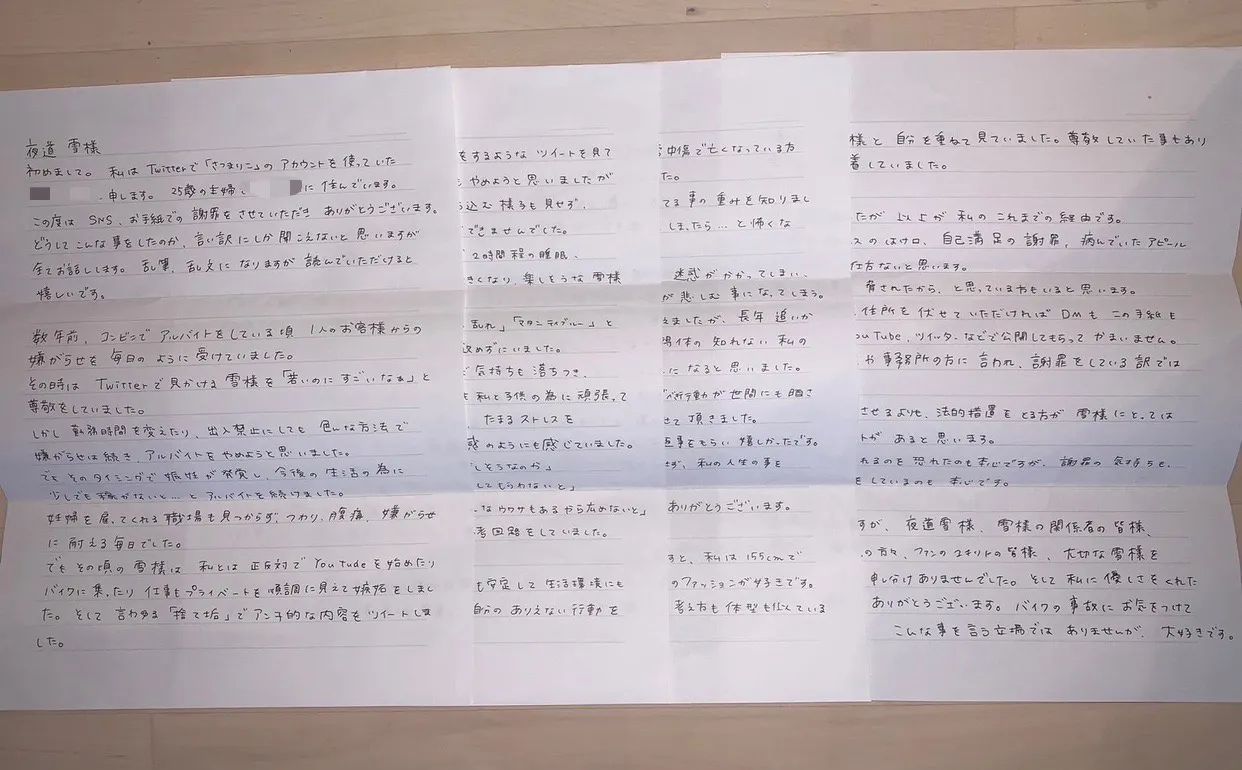 夜道 雪様
初めまして。私は Twitterで「さつまりこ」の アカウントを 使っていた
申します。25歳の主婦、に 住んでいます。
この度は SNS、お手紙での 謝罪を させていただき ありがとうございます。
どうして こんな事をしたのか、言い訳にしか聞こえないと 思いますが
全てお話しします。乱筆、乱文に なりますが 読んでいただけると
嬉しいです。
数年前、コンビニで アルバイトをしている頃 1人のお客様からの
嫌がらせを 毎日の ように 受けていました。
その時は Twitterで 見かける 雪様を「若いのに すごいなぁ」と
尊敬をしていました。
しかし 勤務時間を変えたり、出入禁止にしても 色んな方法で
嫌がらせは続き、アルバイトを やめようと 思いました。
でも そのタイミングで 妊娠が 発覚し、今後の 生活の為に
少しでも 稼がないと…と アルバイトを 続けました。
妊婦を 雇ってくれる 職場も 見つからず、つわり、腹痛、嫌がらせ
に 耐える 毎日でした。
でも その頃の 雪様は 私とは 正反対で YouTubeを始めたり
バイクに 乗ったり 仕事も プライベートも 順調に見えて 嫉妬をしまし
た。そして 言わゆる「捨て垢」で アンチ的な 内容を ツイートしま
した。
をするような ツイートを 見て
やめようと 思いましたが
込む 様子も 見せず、
できませんでした。
2時間程の睡眠、
きくなり、楽しそうな 雪様
乱れ」「マタニティブルー」と
認めずに いました。
気持ちも 落ちつき、
と 私と 子供の 為に 頑張って
たまる ストレスを
惑のようにも 感じていました。
しそうなのか」
してもらわないと」
なウワサもあるから広めないと」
考回路をしていました。
も 安定して 生活環境にも
自分の ありえない 行動を
中傷で 亡くなっている方
た。
てる 事の 重みを 知りまし
しまったら…と 怖くな
迷惑が かかってしまい、
が 悲しむ 事に なってしまう。
えましたが、長年 追いか
得体の 知れない 私の
に なると 思いました。
行動が 世間にも 晒さ
せて 頂きました。
返事をもらい 嬉しかったです。
ず、私の 人生の 事を
ありがとうございます。
すと、私は 155cmで
のファッションが 好きです。
考え方も 体型も 似ている
様と 自分を 重ねて 見ていました。尊敬していた事もあり
着していました。
たが 以上が 私の これまでの 経由です。
スの はけ口、自己満足の 謝罪、病んでいたアピール
仕方ないと 思います。
脅されたから、と思っている方もいると 思います。
住所を 伏せて いただければ DMも この手紙も
ouTube、ツイッターなどで 公開してもらって かまいません。
や 事務所の方に 言われ、謝罪をしている 訳では
させるよりも、法的措置を とる方が 雪様に とっては
トが あると 思います。
れるのを 恐れたのも 本心ですが、謝罪の 気持ちも、
をしているのも 本心です。
すが、夜道雪様、雪様の関係者の 皆様、
の方々、ファンの ユキリトの 皆様、大切な 雪様を
申し分け ありませんでした。そして 私に 優しさを くれた
ありがとうございます。バイクの 事故に お気をつけて
こんな事を 言う 立場では ありませんが、大好きです。